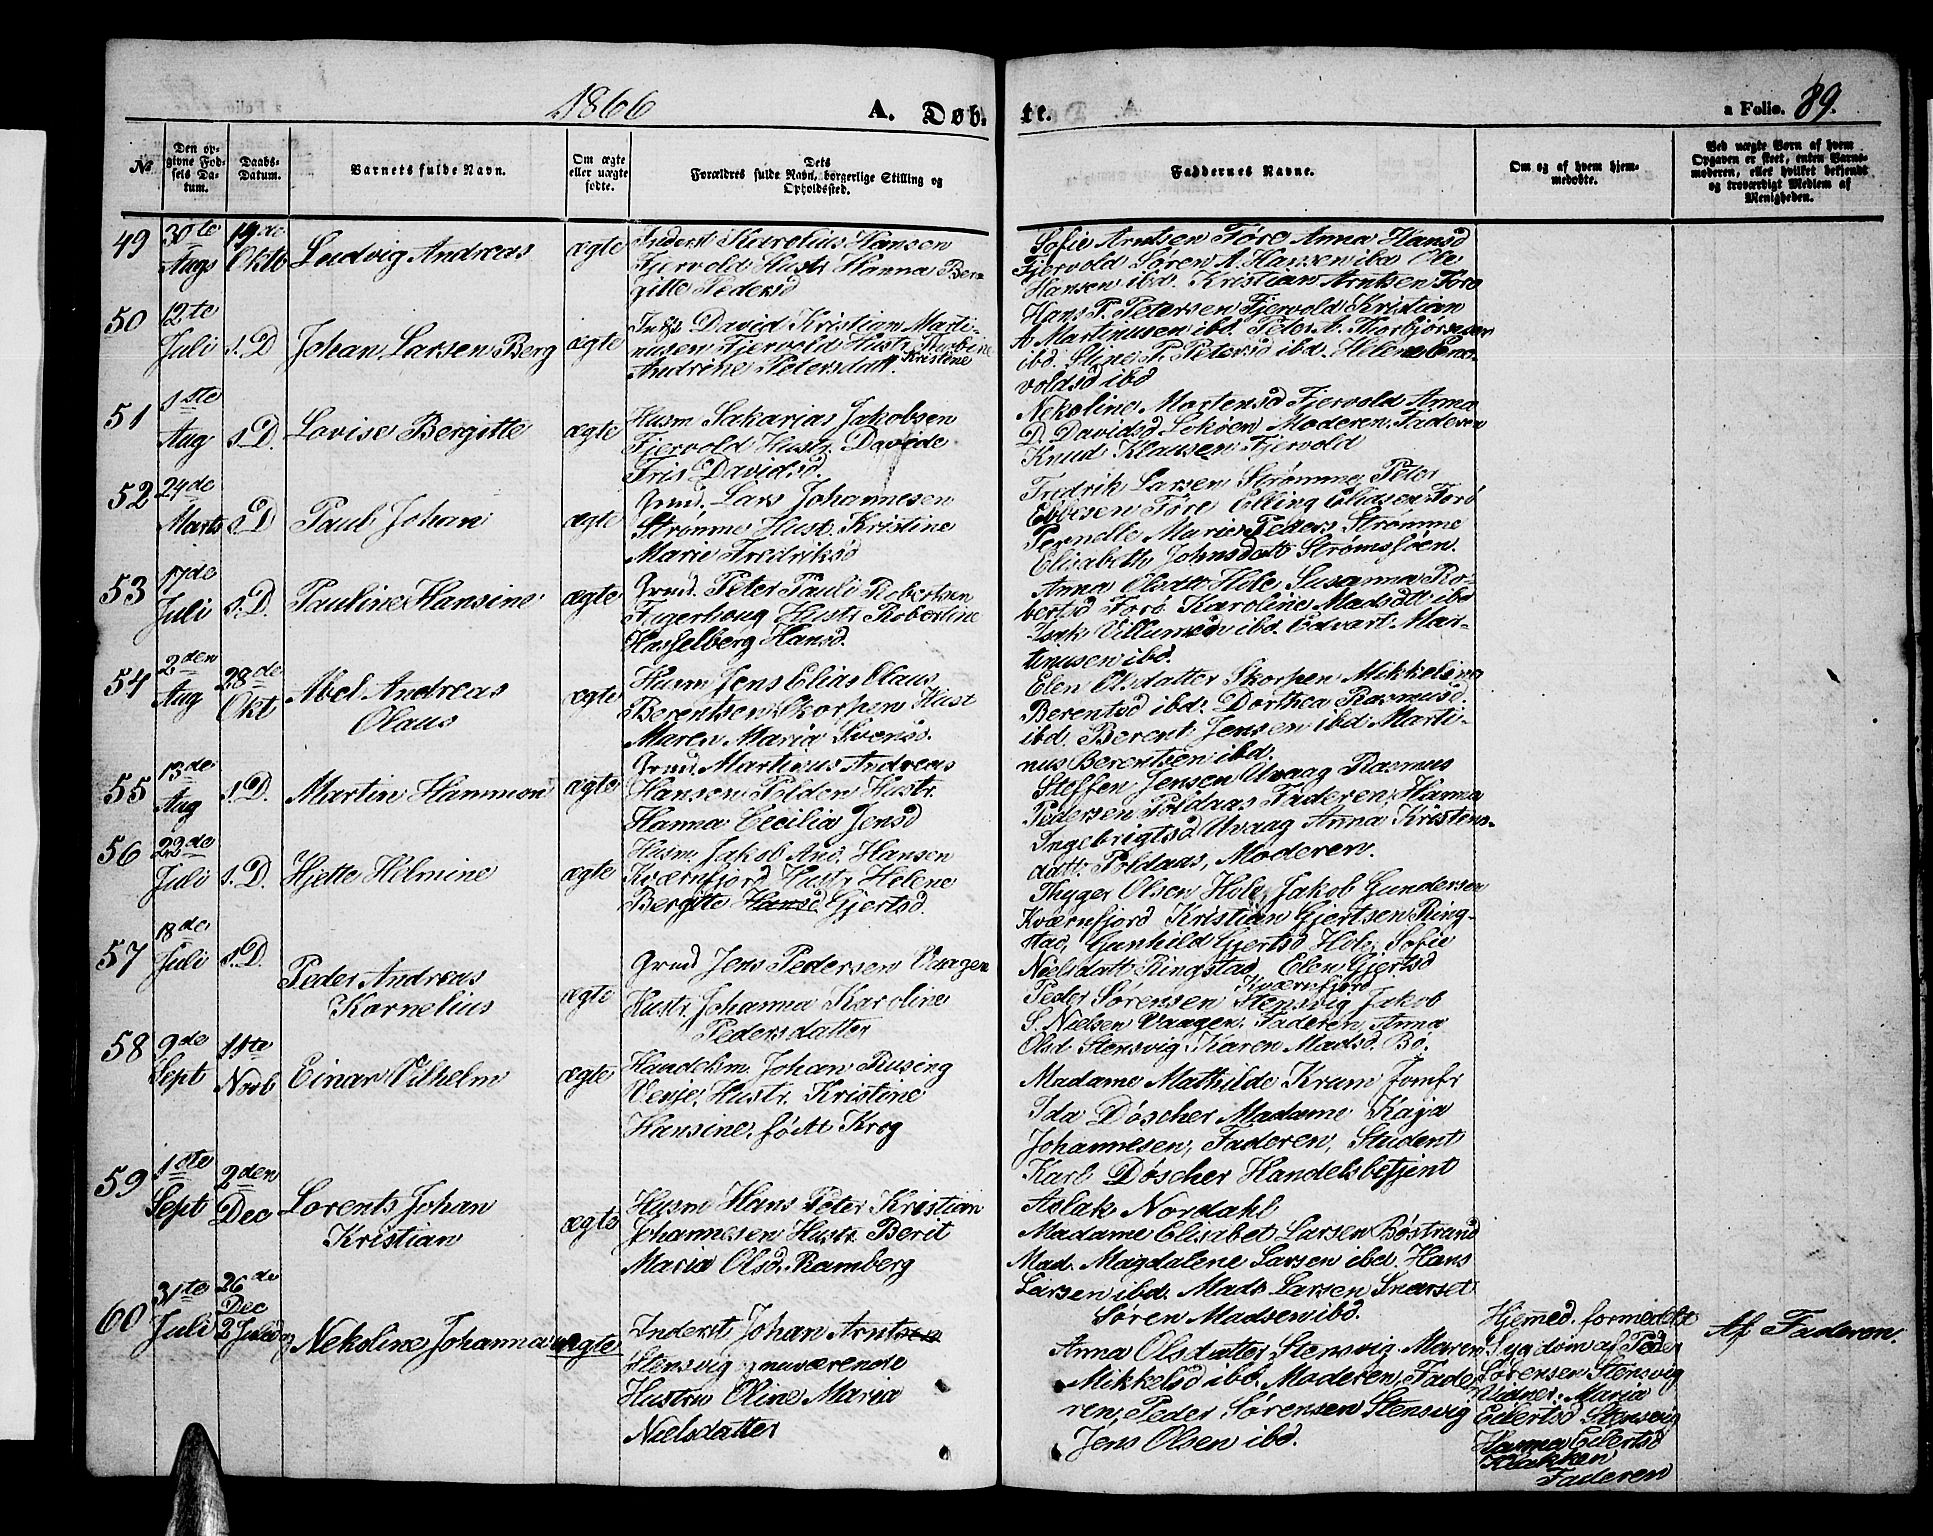 1866
A. Døb-
te.
a Folio. 89.
No.
Den op-
givne Fød-
sels Da-
tum.
Daabs-
Datum.
Barnets fulde Navn.
Om ægte
eller uægte
fødte.
Dets
Forældres fulde Navn, borgerlige Stilling og
Opholdssted.
Faddernes Navne.
Om og af hvem hjem-
medøbte.
Ved uægte Børn af hvem
Opgaven er skeet, enten Barne-
moderen, eller hvilket bekjendt
og troværdigt Medlem af
Menigheden.
49
30te
Augs
19de
Oktb
Ludvig Andreas
ægte
Inderst Karolius Hansen
Fjervold Hustr Hanna Ber-
gitte Pedersd
Sofie Arntsen Føre Anna Hansd
Fjervold Søren A. Hansen ibd Ole
Hansen ibd. Kristian Arntsen Føre
50
12te
Juli
s. D
Johan Larsen Berg
ægte
Inds David Kristian Marti-
nusen Fjervold Hustr Torbine
Andrine Petersdatt. Kristine
Hans P. Petersen Fjervold Kristian
A Martinusen ibd. Peter A. Thorbjørnsen
ibd. Stine P. Petersd ibd. Helene
voldsd ibd
51
1ste
Aug
s. D.
Lovise Bergitte
ægte
Husm Sakarias Jakobsen
Fjervold Hustr. Davide
Fris Davidsd.
Nekoline Mortensd Fjervold Anna
D. Davidsd Moderen, Faderen
Knud Klausen Fjervold
52
24de
Marts
s. D
Paul Johan
ægte
Grud. Lars Johannesen
Strømme Hust. Kristine
Marie Fredriksd
Fredrik Larsen Strømme Peter
Ebbesen Føre Elling Elidsen Forø
Pernelle Marie Peders Strømme
Elisabeth Johnsdatt Strømsføen.
53
17de
Juli
s. D.
Pauline Hansine
ægte
Grud. Peter Pauli Robertsen
Fagerhoug Hustr Robertine
Hasselberg Hansd.
Anna Olsdatt Hole Susanna Ro-
bertsd Forø Karoline Madsdtt ibd
Isak Villumsen ibd. Edvart Mar-
tinusen ibd.
54
2den
Aug
28de
Okt
Abel Andreas
Olaus
ægte
Husm Jens Elias Olaus
Berentsen Skorpen Hust
Maren Maria Svensd.
Elen Olsdatter Skorpen Mikkeline
Berentsd ibd. Dorthea Rasmusd.
ibd. Berent Jensen ibd. Marti-
nus Berentsen ibd.
55
13de
Aug
s. D.
Martin Hammon
ægte
Grud. Martinus Andreas
Hansen Polden Hustr.
Hanna Cecilia Jensd
Steffen Jensen Utvaag Rasmus
Pedersen Poldaas Faderen, Hanna
Ingebrigtsd Utvaag Anna Kristens-
datt. Poldaas, Moderen.
56
23de
Juli
s. D.
Hjette Helmine
ægte
Husm. Jakob And. Hansen
Kværnfjord Hustr Helene
Bergitte Hansd Gjertsd.
Thyger Olsen Hole Jakob Gundersen
Kværnfjord Kristian Gjertsen Ring-
stad, Gunhild Gjertsd Hole Sofie
Nielsdatt Ringstad Elen Gjertsd
Kværnfjord
57
18de
Juli
s. D.
Peder Andreas
Kornelius
ægte
Grud Jens Pedersen Vaagen
Hustr. Johanna Karoline
Pedersdatter
Peder Sørensen Stensvig Jakob
S. Nielsen Vaagen. Faderen, Anna
Olsd Stensvig. Karen Madsd. Bø.
58
9de
Sept
11te
Novb
Einar Vilhelm
ægte
Handelsm. Johan Rusing
Venje, Hustr. Kristine
Hansine, født Krog
Madame Mathilde Kran Jomfr
Ida Døscher Madame Kaja
Johannesen, Faderen, Student
Karl Døscher Handelsbetjent
Aslak Nordahl
59
1ste
Sept
2den
Dec
Lorents Johan
Kristian
ægte
Husm Hans Peter Kristian
Johannesen Hustr. Berit
Maria Olsd. Ramberg
Madame Elisabet Larsen Bøstrand
Mad. Magdalene Larsen ibd. Hans
Larsen ibd. Mads Larsen Snarset
Søren Madsen ibd.
60
31te
Juli
26de
Dec
2 Juledag
Nekoline Johanna
uægte
Inderst, Johan Arntsen
Stensvig, nuværende
Hustru Oline Maria
Nielsdatter
Anna Olsdatter Stensvig, Maren
Mikkelsd ibd. Moderen, Fade-
ren, Peder Sørensen Stensvig
Jens Olsen ibd.
Hjemmed. formedelst
Sygdom af Peder
Sørensen Stensvig
Vidner: Maria
Eilertsd Stensvig
Hanna Eilertsd
Klakken
Faderen
Af Faderen.